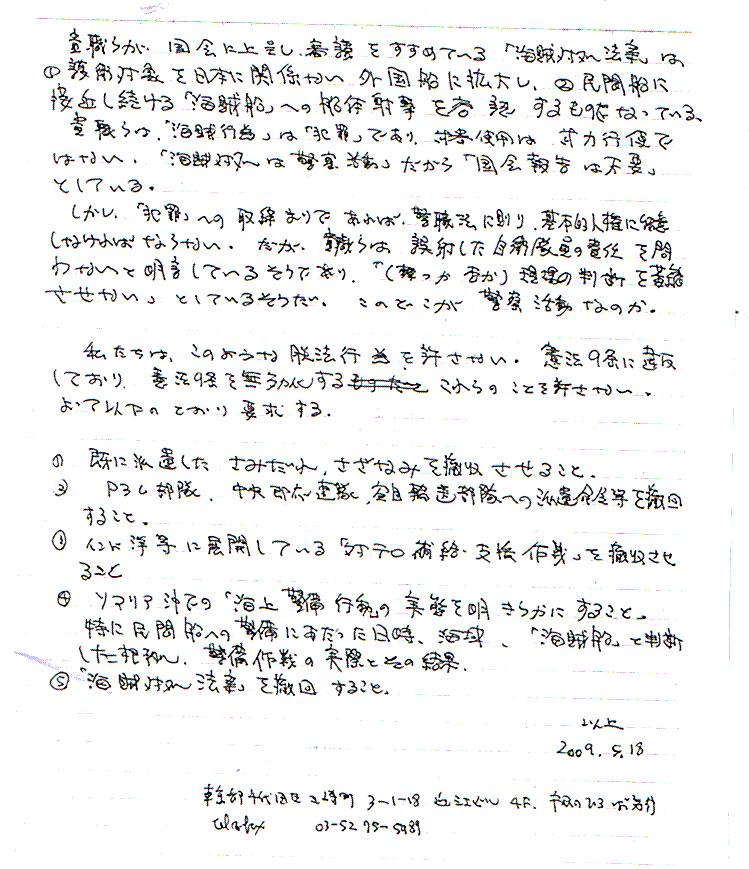 貴職らが、国会に上呈し、審議をすすめている「海賊対処法案」は、
①護衛対象を日本に関係ない外国船に拡大し、②民間船に
接近し続ける「海賊船」への船体射撃を容認するものになっている。
貴職らは、「海賊行為」は「犯罪」であり、武器使用は武力行使で
はない、「海賊対処は警察活動」だから「国会報告は不要」
としている。
しかし、「犯罪」への取締まりであれば、警職法に則り、基本的人権に
しなければならない。だが、貴職らは誤射した自衛隊員の責任を問
わないと明言しているそうであり、「(撃つか否か)現場の判断を萎縮
させない」としているそうだ。このどこが警察活動なのか。
私たちは、このような脱法行為を許さない。憲法9条に違反
しており、憲法9条を無力化するこれらのことを許さない。
よって以下のとおり要求する。
① 既に派遣したさみだれ、さざなみを撤収させること。
② P3C部隊、中央即応連隊、空自輸送部隊への派遣命令等を撤回
すること。
③ インド洋等に展開している「対テロ補給・支援作戦」を撤収させ
ること
④ ソマリア沖での「海上警備行動の実態を明きらかにすること。
特に民間船への警備にあたった日時、海域、「海賊船」と判断
した根拠、警備作戦の実際とその結果。
⑤ 「海賊対処法案」を撤回すること。
以上
2009.5.18
東京都千代田区三崎町 3-1-18 近江ビル 4F、
tel&fax 03-5275-5989